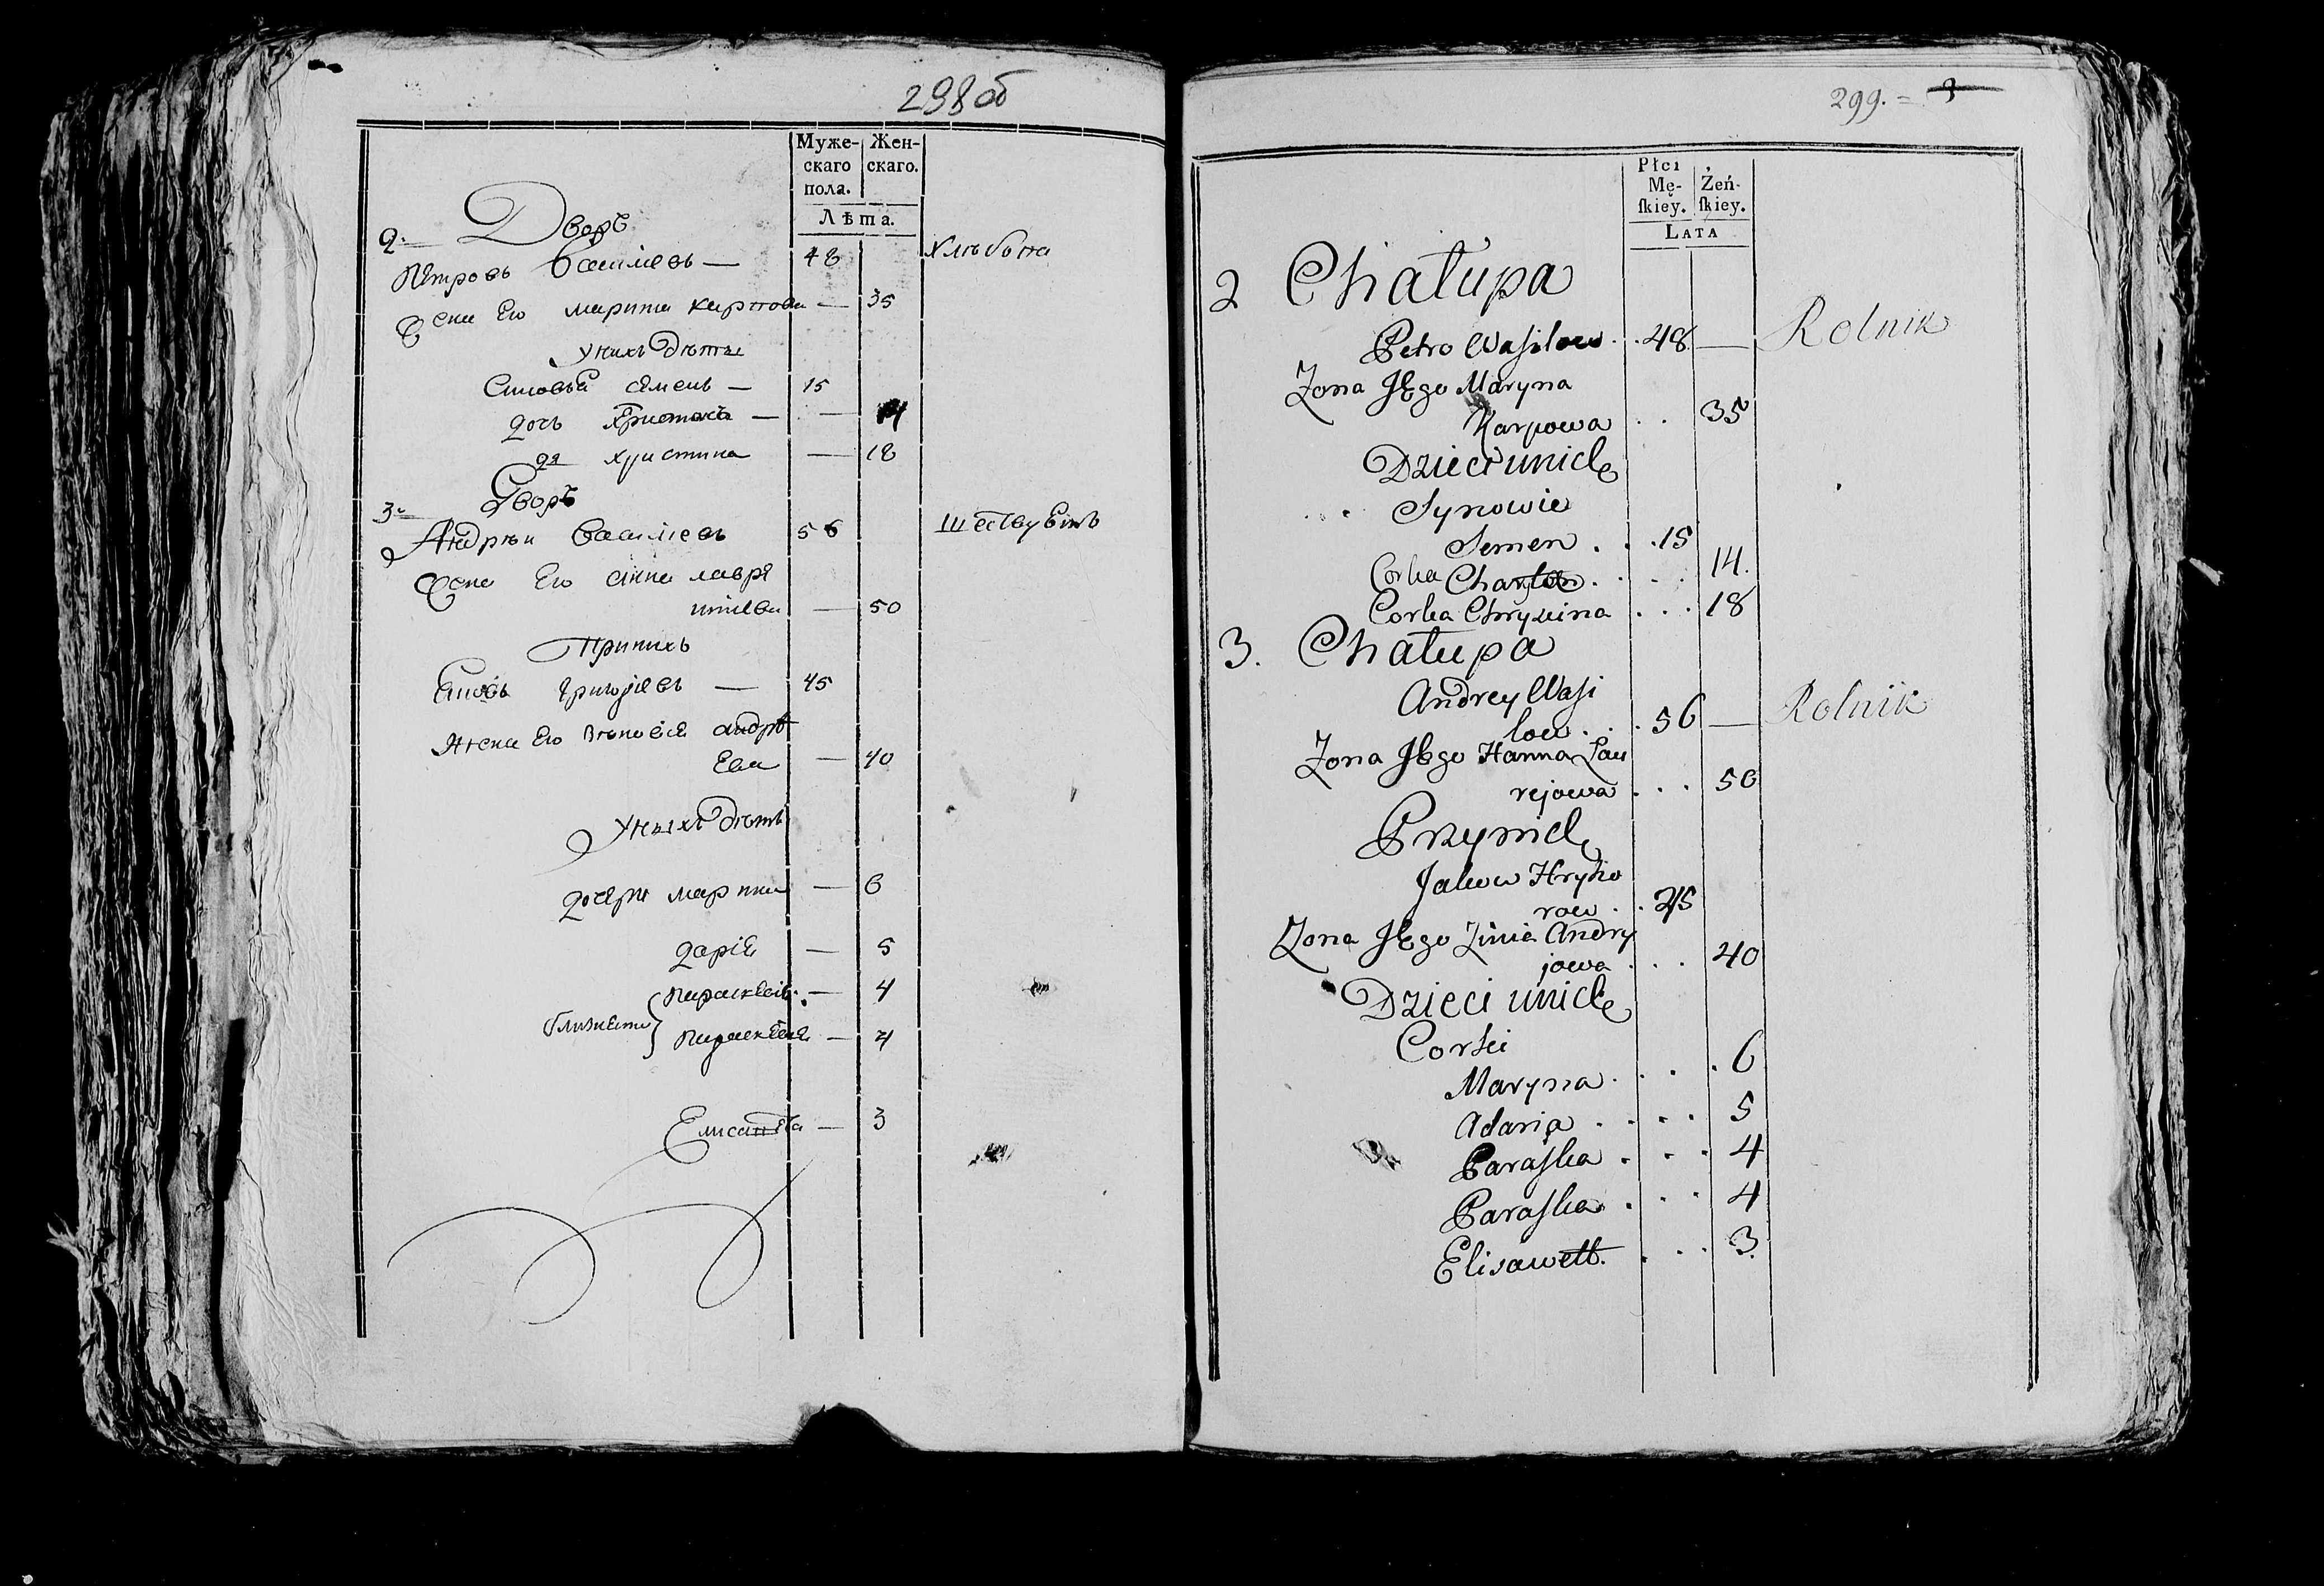 298об
Муже- Жен-
скаго скаго.
пола.
Лѣта.
2. Дворъ
Петровъ Василіевъ — 48 Хлѣбопа
Жена Его марина карпова — 35
У нихъ дѣти
Синовья семенъ — 15
дочь — — 14
дя христина — 18
3. Дворъ
Андрѣи Василіевъ 56
Жена Его анна лавре
нтіева — 50
При нихъ
Григоріевъ — 45
Жена Его андрѣ
Ева — 40
У нихъ дѣти
дочери марина — 6
дарія — 5
параскевія — 4
близнята } параскевія — 4
Елисавета — 3
299. = 3
Płci
Mę- Żeń-
ſkiey. ſkiey.
LATA
2 Chałupa
Petro Waſilow . . 48 — Rolnik
Zona Jego Maryna
Karpowa . . 35
Dzieci unich
Synowie
Semen . . 15
Corka . . . 14.
Corka Chryzina . . . 18
3. Chałupa
Andrey Waſi
low . . 56 — Rolnik
Zona Jego Hanna Law
rejowa . . . 50
Przynich
Jakow Hryho
row . . 45
Zona Jego Zinia Andry
jowa . . . 40
Dzieci unich
Corki
Maryna . . . . 6
Adaria . . . . 5
Paraſka . . . 4
Paraſka . . . 4
Elisawett. . . . 3.